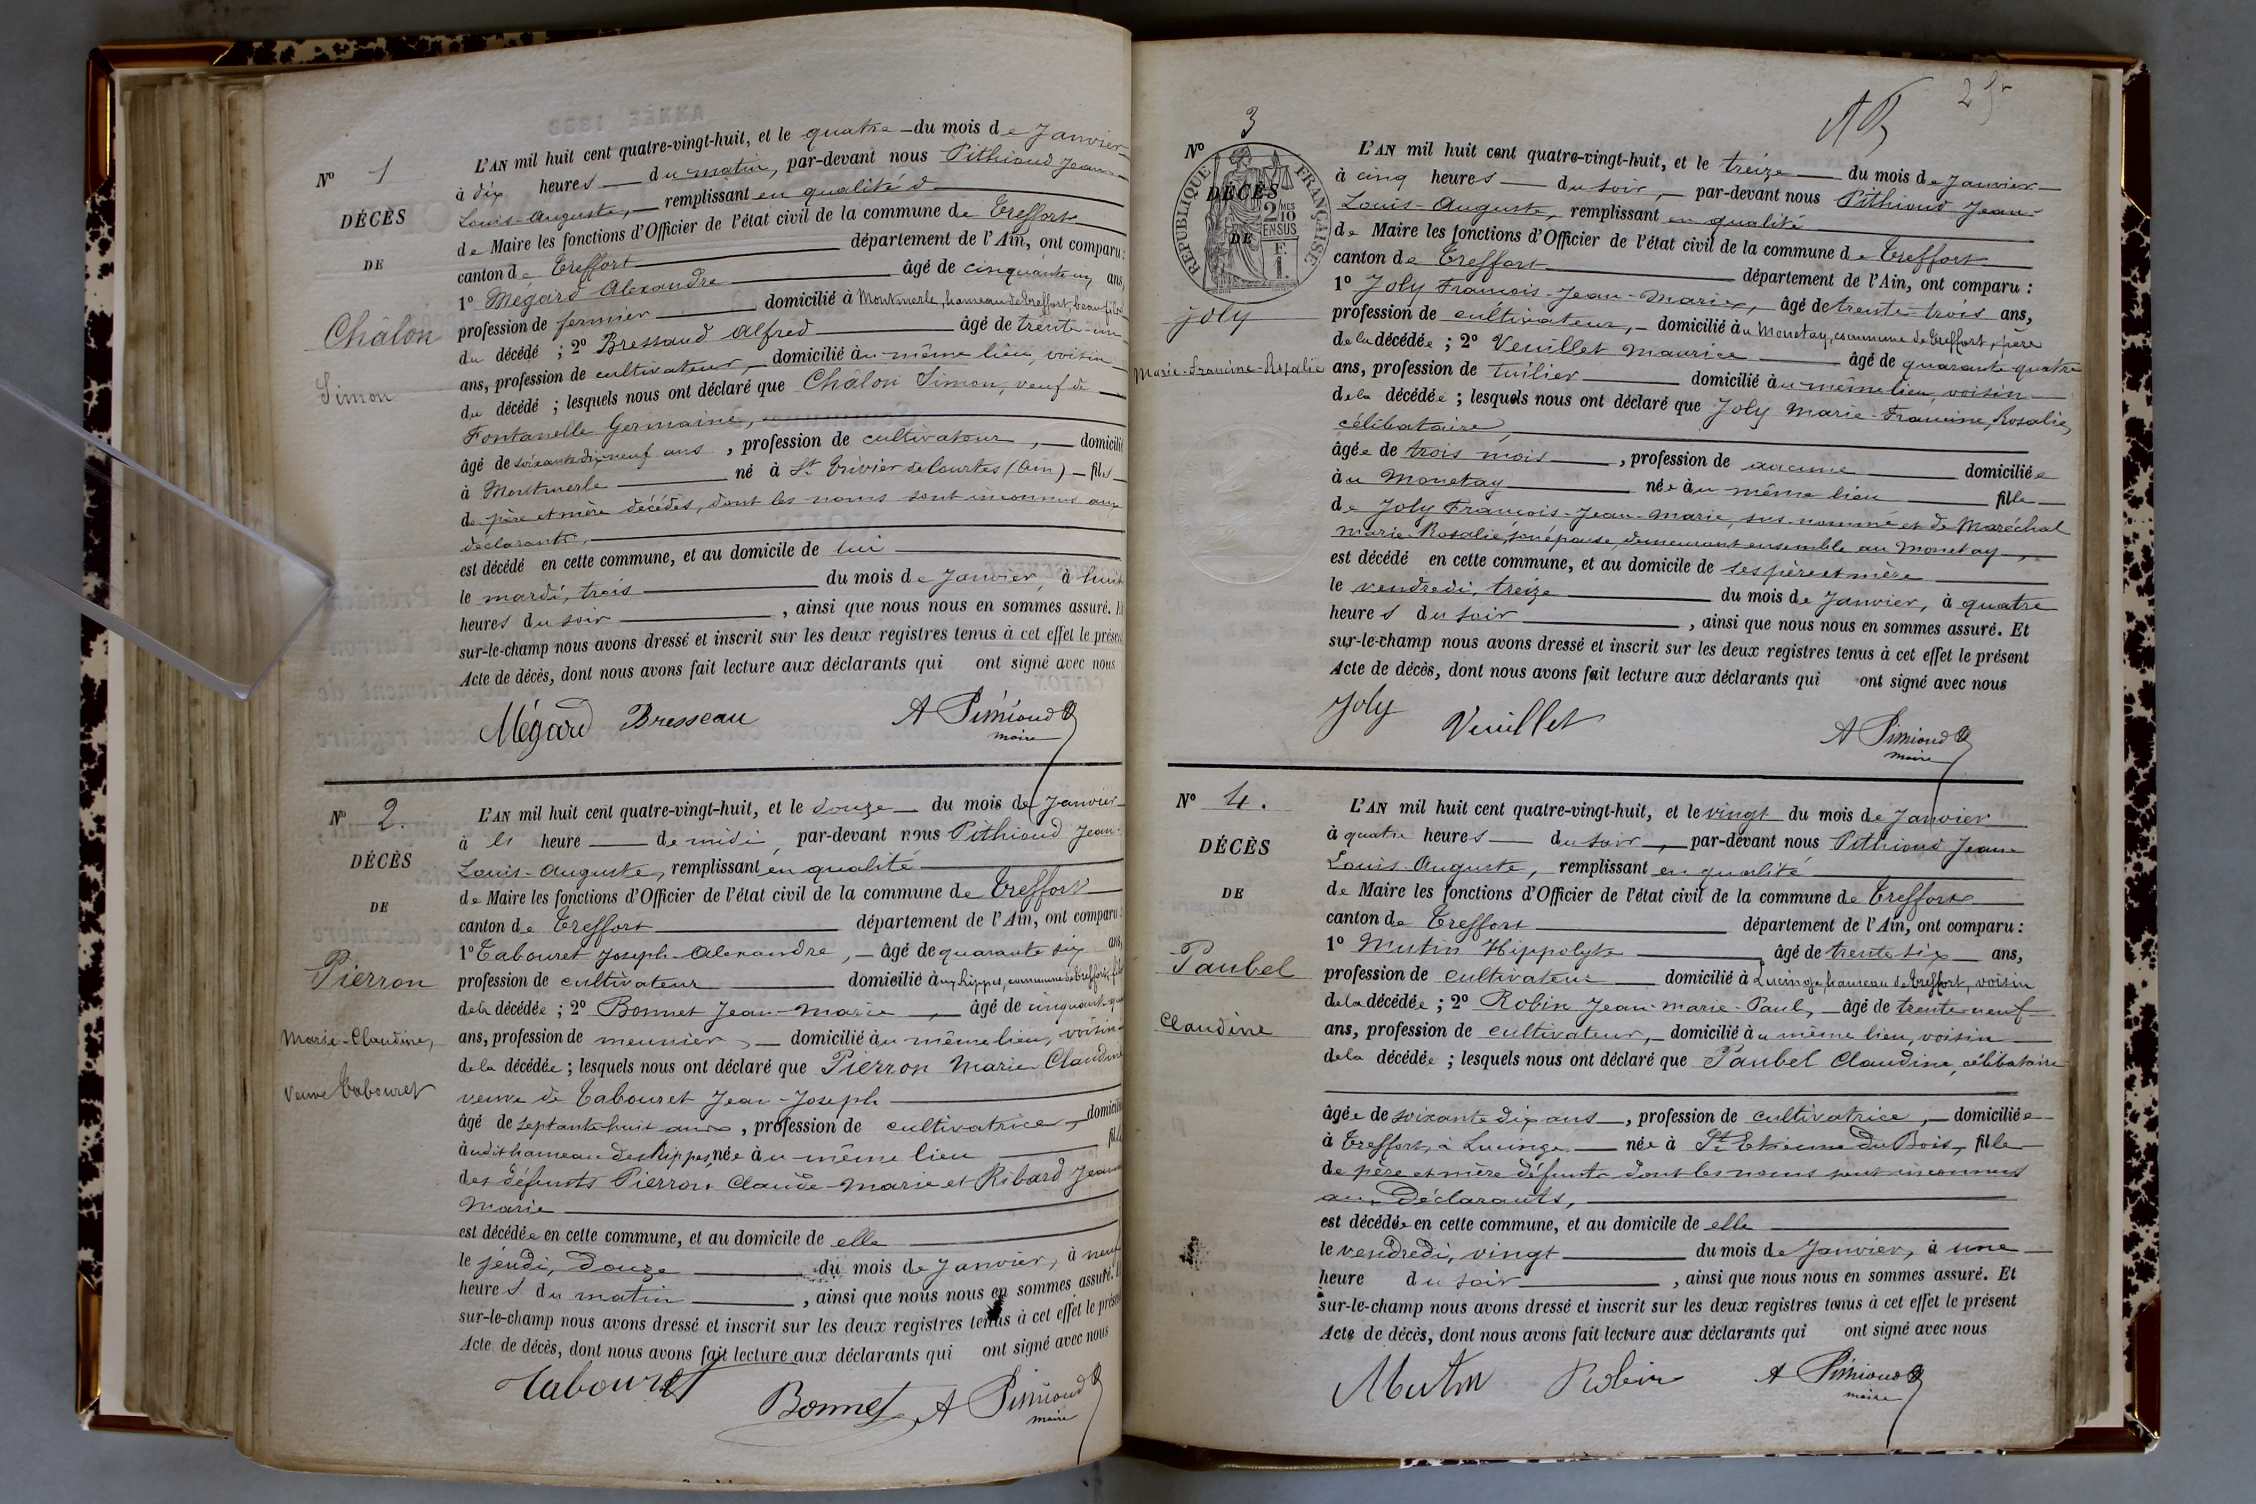 N° 1
DÉCÈS
DE
Châlon
Simon
L'AN mil huit cent quatre-vingt-huit, et le quatre du mois de Janvier
à dix heures du matin, par-devant nous Pithioud Jean-
Louis-Auguste, remplissant en qualité d
de Maire les fonctions d'Officier de l'état civil de la commune de Treffort
canton de Treffort département de l'Ain, ont comparu :
1° Mégard Alexandre âgé de cinquante un ans,
profession de fermier domicilié à Montmerle, hameau de Treffort, beau fils
du décédé ; 2° Bressaud Alfred âgé de trente-un
ans, profession de cultivateur, domicilié au même lieu, voisin
du décédé ; lesquels nous ont déclaré que Châlon Simon, veuf de
Fontanelle Germaine,
âgé de soixante dix neuf ans, profession de cultivateur, domicilié
à Montmerle né à St Trivier de Courtes (Ain) fils
de père et mère décédés, dont les noms sont inconnus aux
déclarants,
est décédé en cette commune, et au domicile de lui
le mardi, trois du mois de Janvier, à huit
heures du soir, ainsi que nous nous en sommes assuré. Et
sur-le-champ nous avons dressé et inscrit sur les deux registres tenus à cet effet le présent
Acte de décès, dont nous avons fait lecture aux déclarants qui ont signé avec nous
Mégard Bresseau A Pithioud
maire
N° 2.
DÉCÈS
DE
Pierron
Marie-Claudine,
Veuve Tabouret
L'AN mil huit cent quatre-vingt-huit, et le douze du mois de Janvier
à heure de midi, par-devant nous Pithioud Jean-
Louis-Auguste, remplissant en qualité
de Maire les fonctions d'Officier de l'état civil de la commune de Treffort
canton de Treffort département de l'Ain, ont comparu :
1° Tabouret Joseph-Alexandre, âgé de quarante six ans,
profession de cultivateur domicilié aux Rippes, commune de Treffort, fils
de la décédée ; 2° Bonnet Jean-Marie, âgé de cinquante-quatre
ans, profession de meunier, domicilié au même lieu, voisin
de la décédée ; lesquels nous ont déclaré que Pierron Marie Claudine
veuve de Tabouret Jean-Joseph
âgé de septante huit ans, profession de cultivatrice, domiciliée
audit hameau des Rippes, née au même lieu fille
des défunts Pierron Claude-Marie et Ribard Jeanne
Marie
est décédée en cette commune, et au domicile de elle
le jeudi, douze du mois de Janvier, à neuf
heures du matin, ainsi que nous nous en sommes assuré. Et
sur-le-champ nous avons dressé et inscrit sur les deux registres tenus à cet effet le présent
Acte de décès, dont nous avons fait lecture aux déclarants qui ont signé avec nous
Tabouret
Bonnet A Pithioud
maire
25
N° 3
DÉCÈS
DE
RÉPUBLIQUE FRANÇAISE
2 MES 10 EN SUS
1 F
Joly
Marie-Francine-Rosalie
L'AN mil huit cent quatre-vingt-huit, et le treize du mois de Janvier
à cinq heures du soir, par-devant nous Pithioud Jean-
Louis-Auguste, remplissant en qualité
de Maire les fonctions d'Officier de l'état civil de la commune de Treffort
canton de Treffort département de l'Ain, ont comparu :
1° Joly Francois-Jean-Marie, âgé de trente-trois ans,
profession de cultivateur, domicilié au Monetay, commune de Treffort, père
de la décédée ; 2° Veuillet Maurice âgé de quarante quatre
ans, profession de tuilier domicilié au même lieu, voisin
de la décédée ; lesquels nous ont déclaré que Joly Marie-Francine, Rosalie,
célibataire,
âgée de trois mois, profession de aucune domiciliée
au Monetay née au même lieu fille
de Joly François-Jean-Marie, sus-nommé et de Maréchal
Marie-Rosalie, son épouse, demeurant ensemble au Monetay,
est décédé en cette commune, et au domicile de ses père et mère
le vendredi, treize du mois de Janvier, à quatre
heures du soir, ainsi que nous nous en sommes assuré. Et
sur-le-champ nous avons dressé et inscrit sur les deux registres tenus à cet effet le présent
Acte de décès, dont nous avons fait lecture aux déclarants qui ont signé avec nous
Joly Veuillet
A Pithioud
maire
N° 4.
DÉCÈS
DE
Paubel
Claudine
L'AN mil huit cent quatre-vingt-huit, et le vingt du mois de Janvier
à quatre heures du soir, par-devant nous Pithioud Jean
Louis-Auguste, remplissant en qualité
de Maire les fonctions d'Officier de l'état civil de la commune de Treffort
canton de Treffort département de l'Ain, ont comparu :
1° Mutin Hippolyte âgé de trente six ans,
profession de cultivateur domicilié à Lucinge, hameau de Treffort, voisin
de la décédée ; 2° Robin Jean-Marie-Paul, âgé de trente-neuf
ans, profession de cultivateur, domicilié au même lieu, voisin
de la décédée ; lesquels nous ont déclaré que Paubel Claudine, célibataire
âgée de soixante dix ans, profession de cultivatrice, domiciliée
à Treffort, à Lucinge née à St Etienne du Bois, fille
de père et mère défunts dont les noms sont inconnus
aux Déclarants,
est décédée en cette commune, et au domicile de elle
le vendredi, vingt du mois de Janvier, à une
heure du soir, ainsi que nous nous en sommes assuré. Et
sur-le-champ nous avons dressé et inscrit sur les deux registres tenus à cet effet le présent
Acte de décès, dont nous avons fait lecture aux déclarants qui ont signé avec nous
Mutin Robin A Pithioud
maire